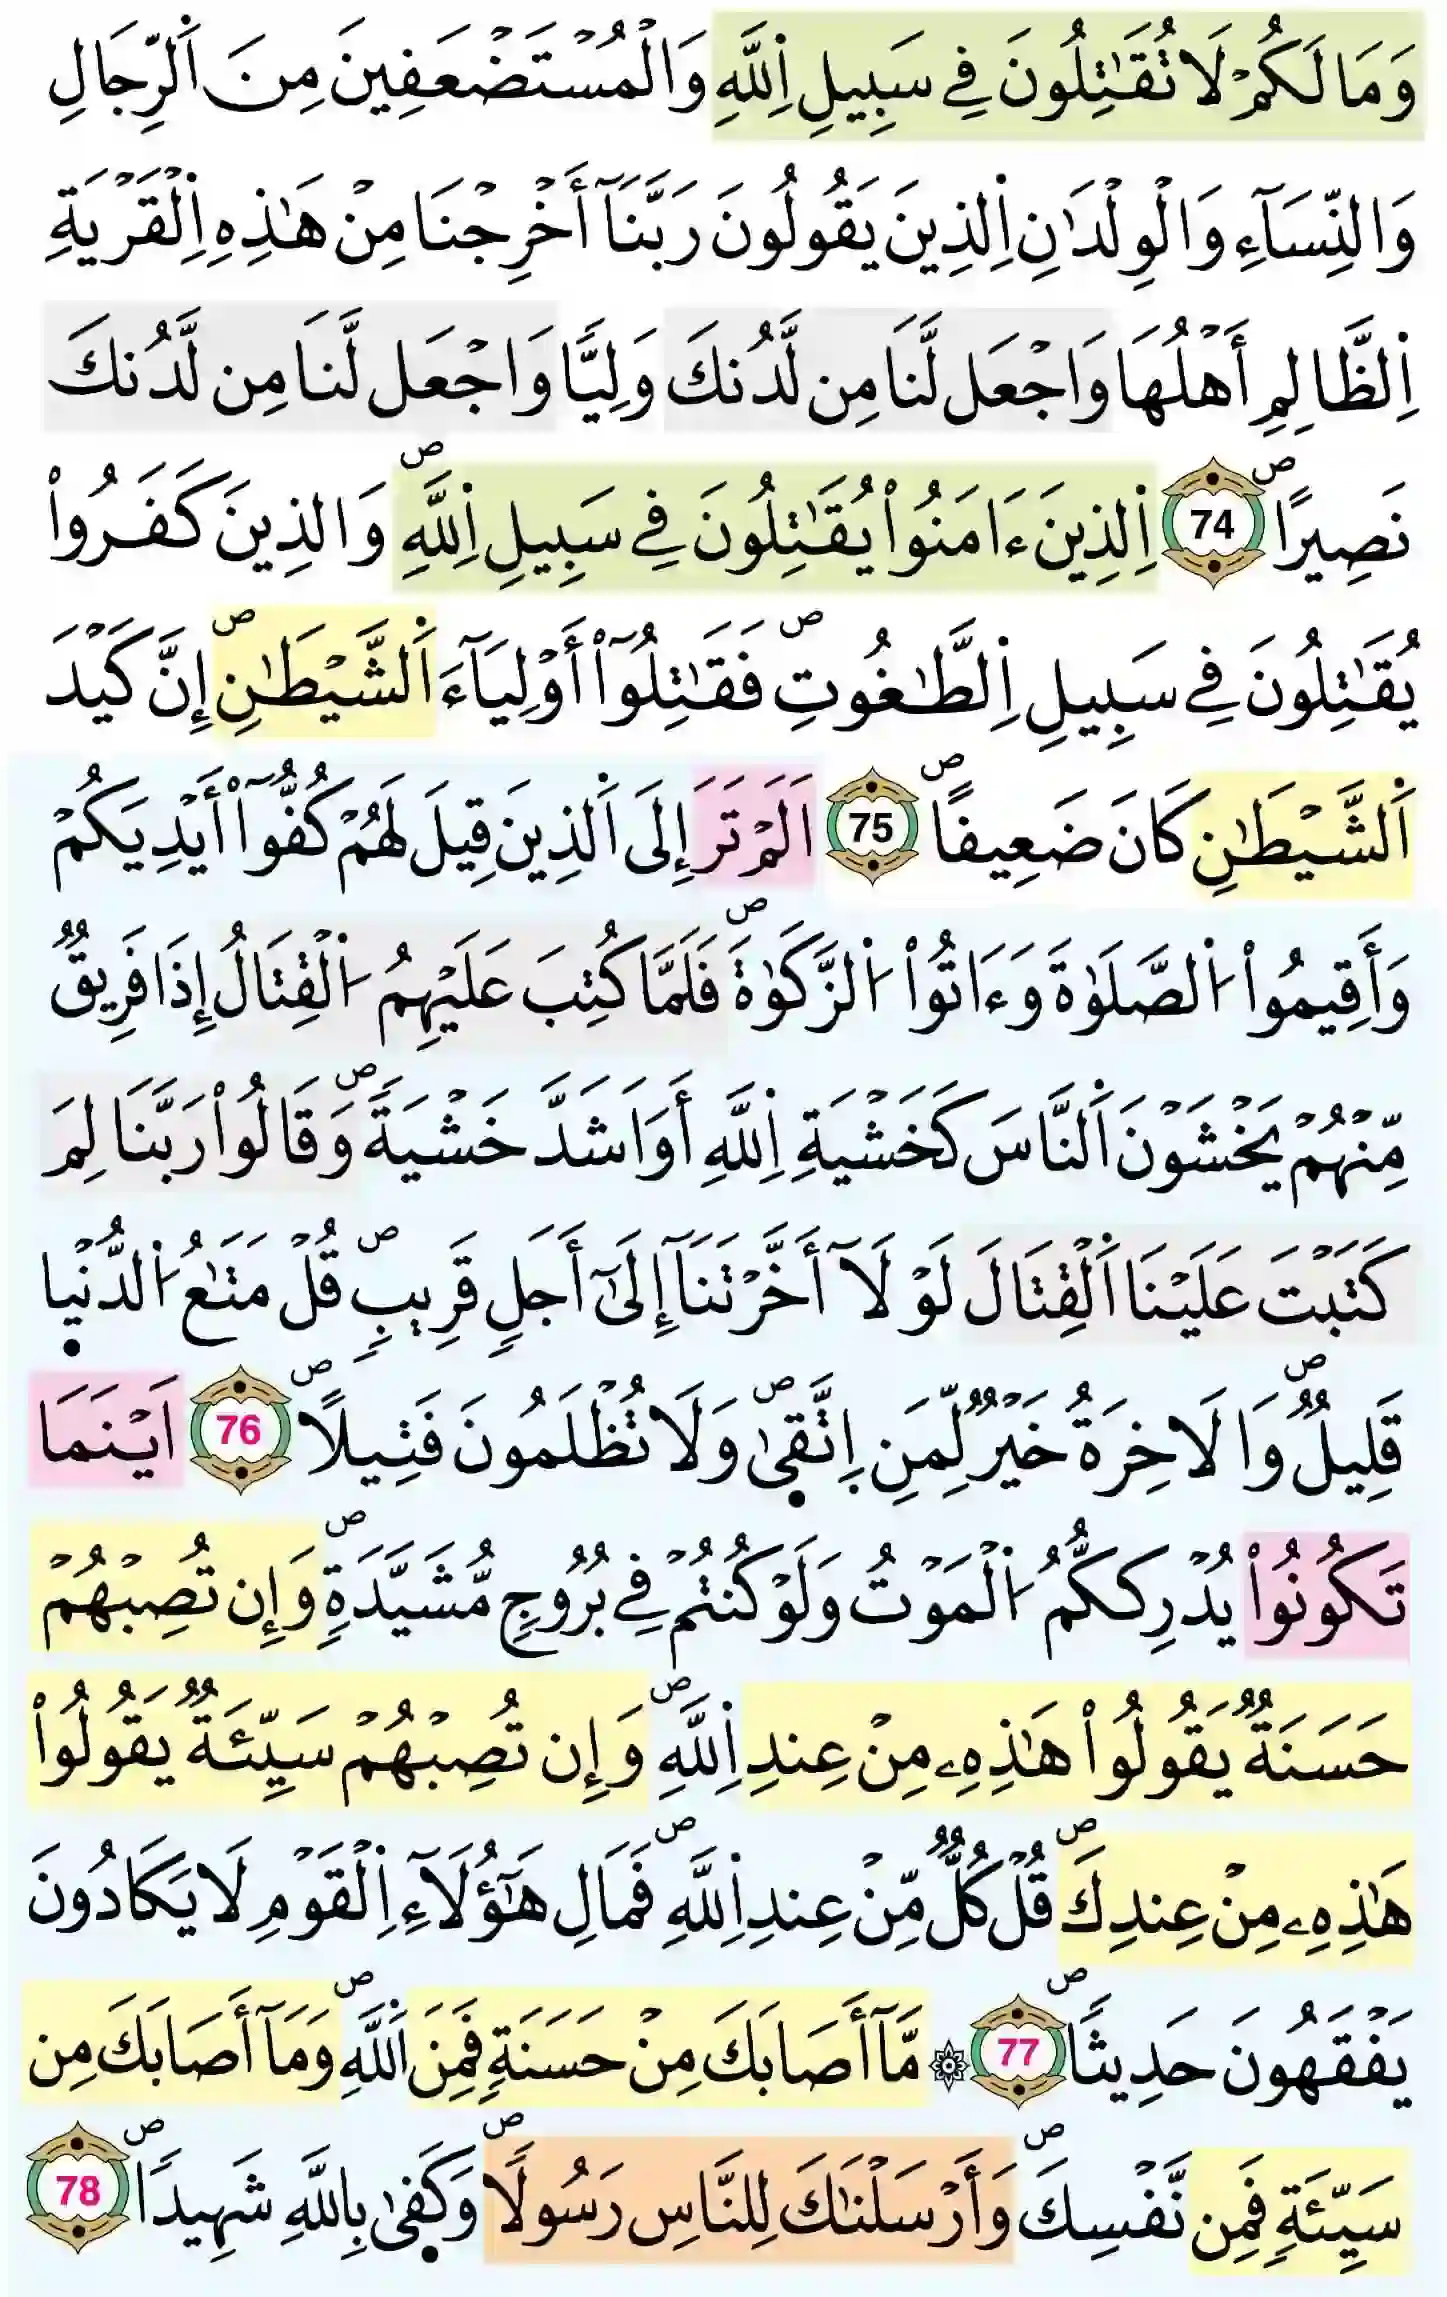 وَمَا لَكُمْ لَا تُقَٰتِلُونَ فِے سَبِيلِ اِ۬للَّهِ وَالْمُسْتَضْعَفِينَ مِنَ اَ۬لرِّجَالِ
وَالنِّسَآءِ وَالْوِلْدَٰنِ اِ۬لذِينَ يَقُولُونَ رَبَّنَآ أَخْرِجْنَا مِنْ هَٰذِهِ اِ۬لْقَرْيَةِ
اِ۬لظَّالِمِ أَهْلُهَا وَاجْعَل لَّنَا مِن لَّدُنكَ وَلِيّٗا وَاجْعَل لَّنَا مِن لَّدُنكَ
نَصِيراًۖ 74 اِ۬لذِينَ ءَامَنُواْ يُقَٰتِلُونَ فِے سَبِيلِ اِ۬للَّهِۖ وَالذِينَ كَفَرُواْ
يُقَٰتِلُونَ فِے سَبِيلِ اِ۬لطَّٰغُوتِۖ فَقَٰتِلُوٓاْ أَوْلِيَآءَ اَ۬لشَّيْطَٰنِۖ إِنَّ كَيْدَ
اَ۬لشَّيْطَٰنِ كَانَ ضَعِيفاًۖ 75 اَلَمْ تَرَ إِلَى اَ۬لذِينَ قِيلَ لَهُمْ كُفُّوٓاْ أَيْدِيَكُمْ
وَأَقِيمُواْ اُ۬لصَّلَوٰةَ وَءَاتُواْ اُ۬لزَّكَوٰةَۖ فَلَمَّا كُتِبَ عَلَيْهِمُ اُ۬لْقِتَالُ إِذَا فَرِيقٞ
مِّنْهُمْ يَخْشَوْنَ اَ۬لنَّاسَ كَخَشْيَةِ اِ۬للَّهِ أَوَ اَشَدَّ خَشْيَةٗۖ وَقَالُواْ رَبَّنَا لِمَ
كَتَبْتَ عَلَيْنَا اَ۬لْقِتَالَ لَوْ لَآ أَخَّرْتَنَآ إِلَىٰٓ أَجَلٖ قَرِيبٖۖ قُلْ مَتَٰعُ اُ۬لدُّنْي۪ا
قَلِيلٞۖ وَالَاخِرَةُ خَيْرٞ لِّمَنِ اِ۪تَّق۪ىٰۖ وَلَا تُظْلَمُونَ فَتِيلاًۖ 76 اَيْنَمَا
تَكُونُواْ يُدْرِككُّمُ اُ۬لْمَوْتُ وَلَوْ كُنتُمْ فِے بُرُوجٖ مُّشَيَّدَةٖۖ وَإِن تُصِبْهُمْ
حَسَنَةٞ يَقُولُواْ هَٰذِهِۦ مِنْ عِندِ اِ۬للَّهِۖ وَإِن تُصِبْهُمْ سَيِّئَةٞ يَقُولُواْ
هَٰذِهِۦ مِنْ عِندِكَۖ قُلْ كُلّٞ مِّنْ عِندِ اِ۬للَّهِۖ فَمَالِ هَٰٓؤُلَآءِ اِ۬لْقَوْمِ لَا يَكَادُونَ
يَفْقَهُونَ حَدِيثاٗۖ 77 ۞ مَّآ أَصَابَكَ مِنْ حَسَنَةٖ فَمِنَ اَ۬للَّهِۖ وَمَآ أَصَابَكَ مِن
سَيِّئَةٖ فَمِن نَّفْسِكَۖ وَأَرْسَلْنَٰكَ لِلنَّاسِ رَسُولاٗۖ وَكَف۪ىٰ بِاللَّهِ شَهِيداٗۖ 78